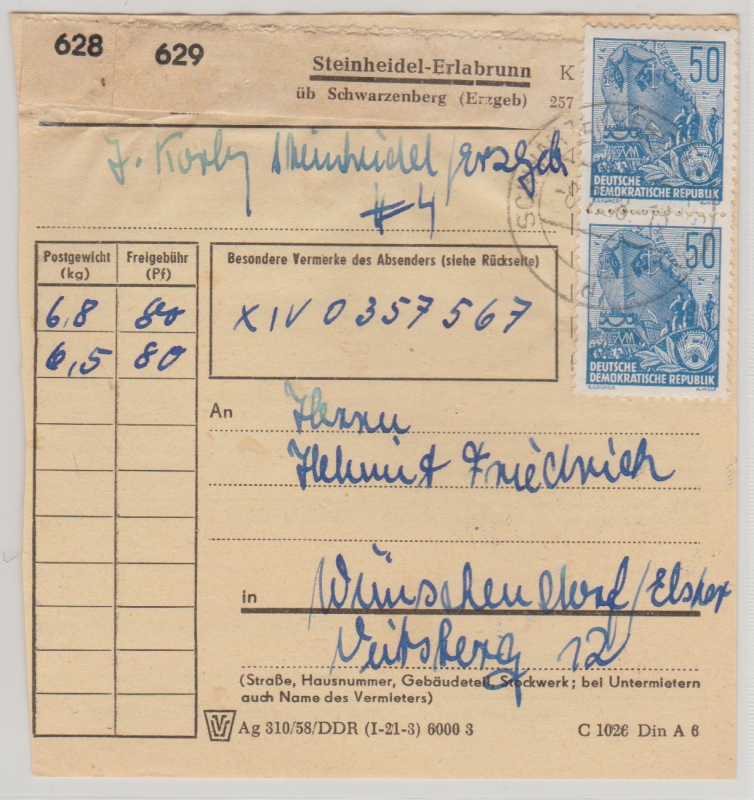 628 629
Steinheidel-Erlabrunn K
üb Schwarzenberg (Erzgeb) 257
50
DEUTSCHE
DEMOKRATISCHE REPUBLIK
Steinheidel/Erzgeb
# 4
50
DEUTSCHE
DEMOKRATISCHE REPUBLIK
Postgewicht (kg) Freigebühr (Pf)
6,8 80
6,5 80
Besondere Vermerke des Absenders (siehe Rückseite)
XIV 0357567
An Herrn
Helmut Friedrich
in Wünschendorf/Elster
Veitsberg 12
(Straße, Hausnummer, Gebäudeteil, Stockwerk; bei Untermietern
auch Name des Vermieters)
Ag 310/58/DDR (I-21-3) 6000 3 C 1026 Din A 6